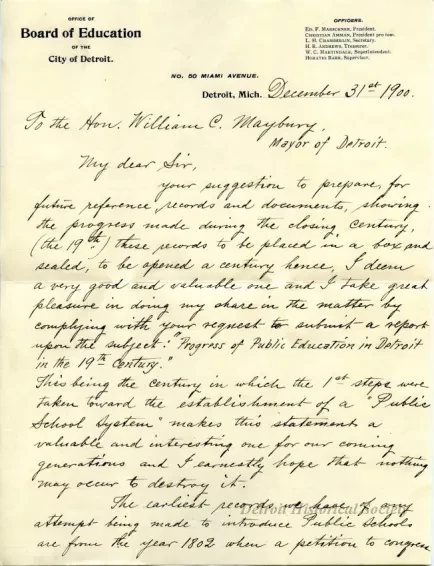 OFFICE OF
Board of Education
OF THE
City of Detroit.
OFFICERS.
ED. F. MARSCHNER, President.
CHRISTIAN AMMAN, President pro tem.
L. H. CHAMBERLIN, Secretary.
H. K. ANDREWS, Treasurer.
W. C. MARTINDALE, Superintendent.
HORATIO BARR, Supervisor.
NO. 50 MIAMI AVENUE.
Detroit, Mich. December 31st 1900.
To the Hon. William C. Maybury,
Mayor of Detroit.
My dear Sir,
your suggestion to prepare, for
future reference, records and documents, showing
the progress made during the closing century,
(the 19th) these records to be placed in a box and
sealed, to be opened a century hence, I deem
a very good and valuable one and I take great
pleasure in doing my share in the matter by
complying with your request to submit a report
upon the subject: "Progress of Public Education in Detroit
in the 19th Century."
This being the century in which the 1st steps were
taken toward the establishment of a "Public
School System" makes this statement a
valuable and interesting one for our coming
generations and I earnestly hope that nothing
may occur to destroy it.
The earliest records we have of any
attempt being made to introduce Public Schools
are from the year 1802 when a petition to congress
Detroit Historical Society